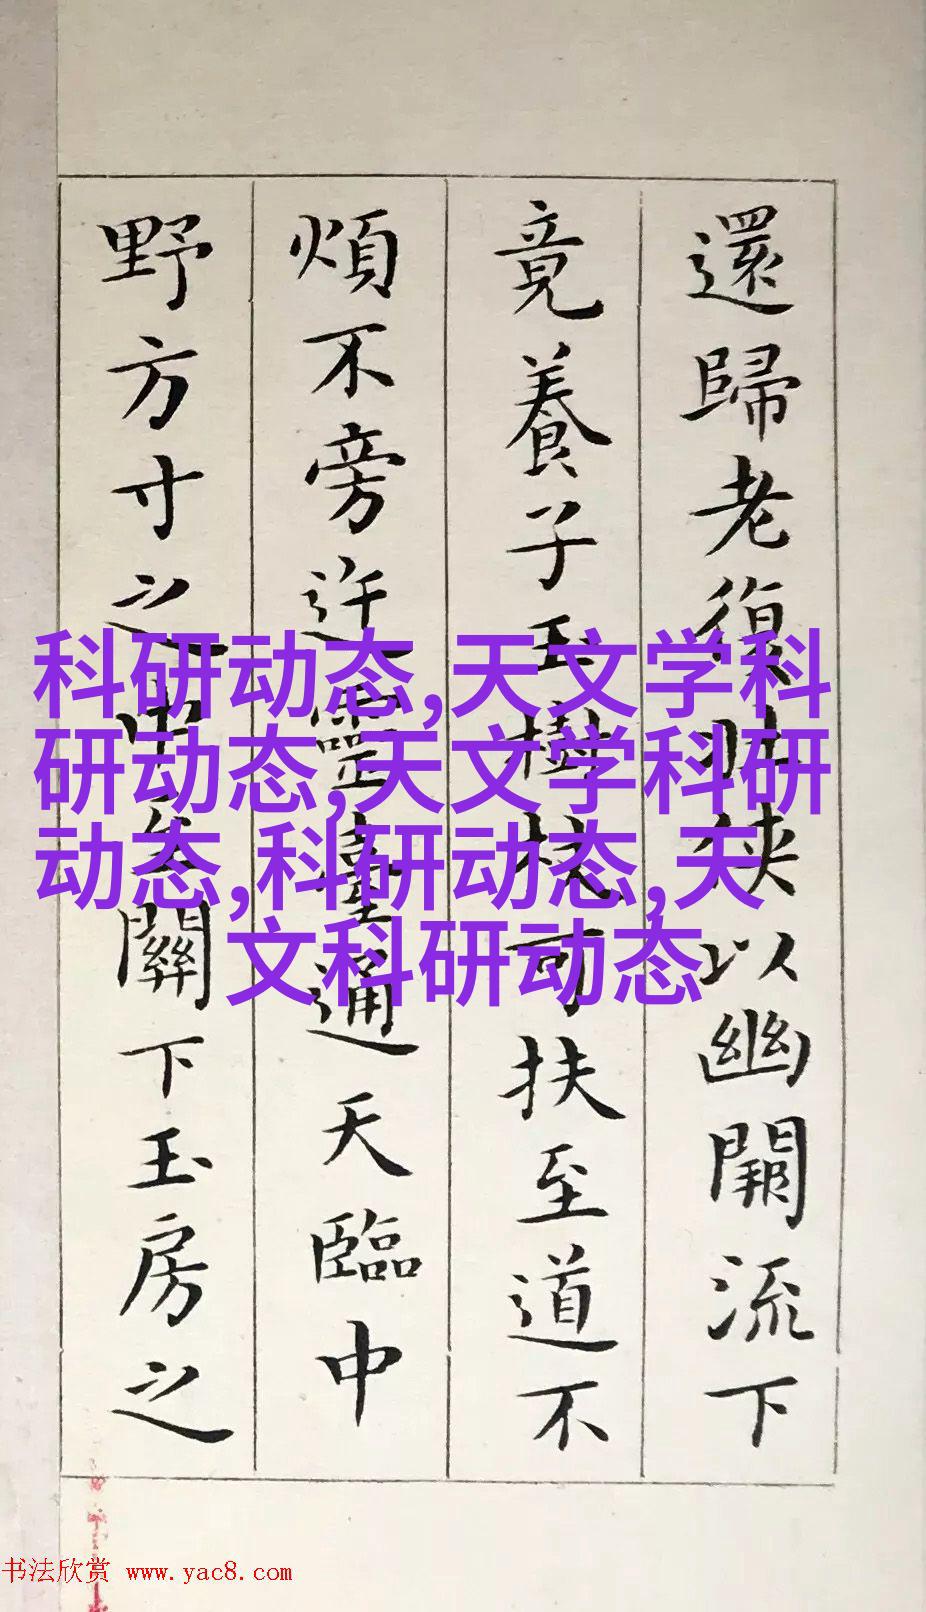 還歸老復壯俠以幽闕流下
竟養子玉樹杖可扶至道不
煩不旁迕靈臺通天臨中
野方寸之中至關下玉房之
科研动态,天文学科
研动态,天文学科研
动态,科研动态,天
文科研动态
书法欣赏 www.yac8.com